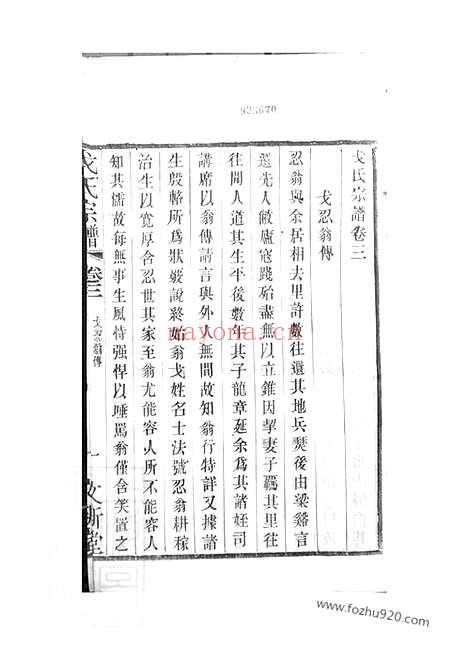 923670
戈氏宗譜卷三
戈忍翁傳
忍翁與余居相去里許數往還其地兵燹後由梁谿言
還先人敝廬寇踐殆盡無以立錐因挈妻子羈其里往
往聞人道其生平後數年其子龍章延余為其諸姪司
講席以翁傳請言與外人無間故知翁行特詳又據諸
生殷輅所為狀爰說終始翁戈姓名士法號忍翁耕稼
治生以寬厚含忍世其家至翁尤能容人所不能容人
知其懦故每無事生風恃强悍以唾罵翁僅含笑置之
戈氏宗譜
卷三
戈忍翁傳
一
nayona.cn
www.fozhu920.com